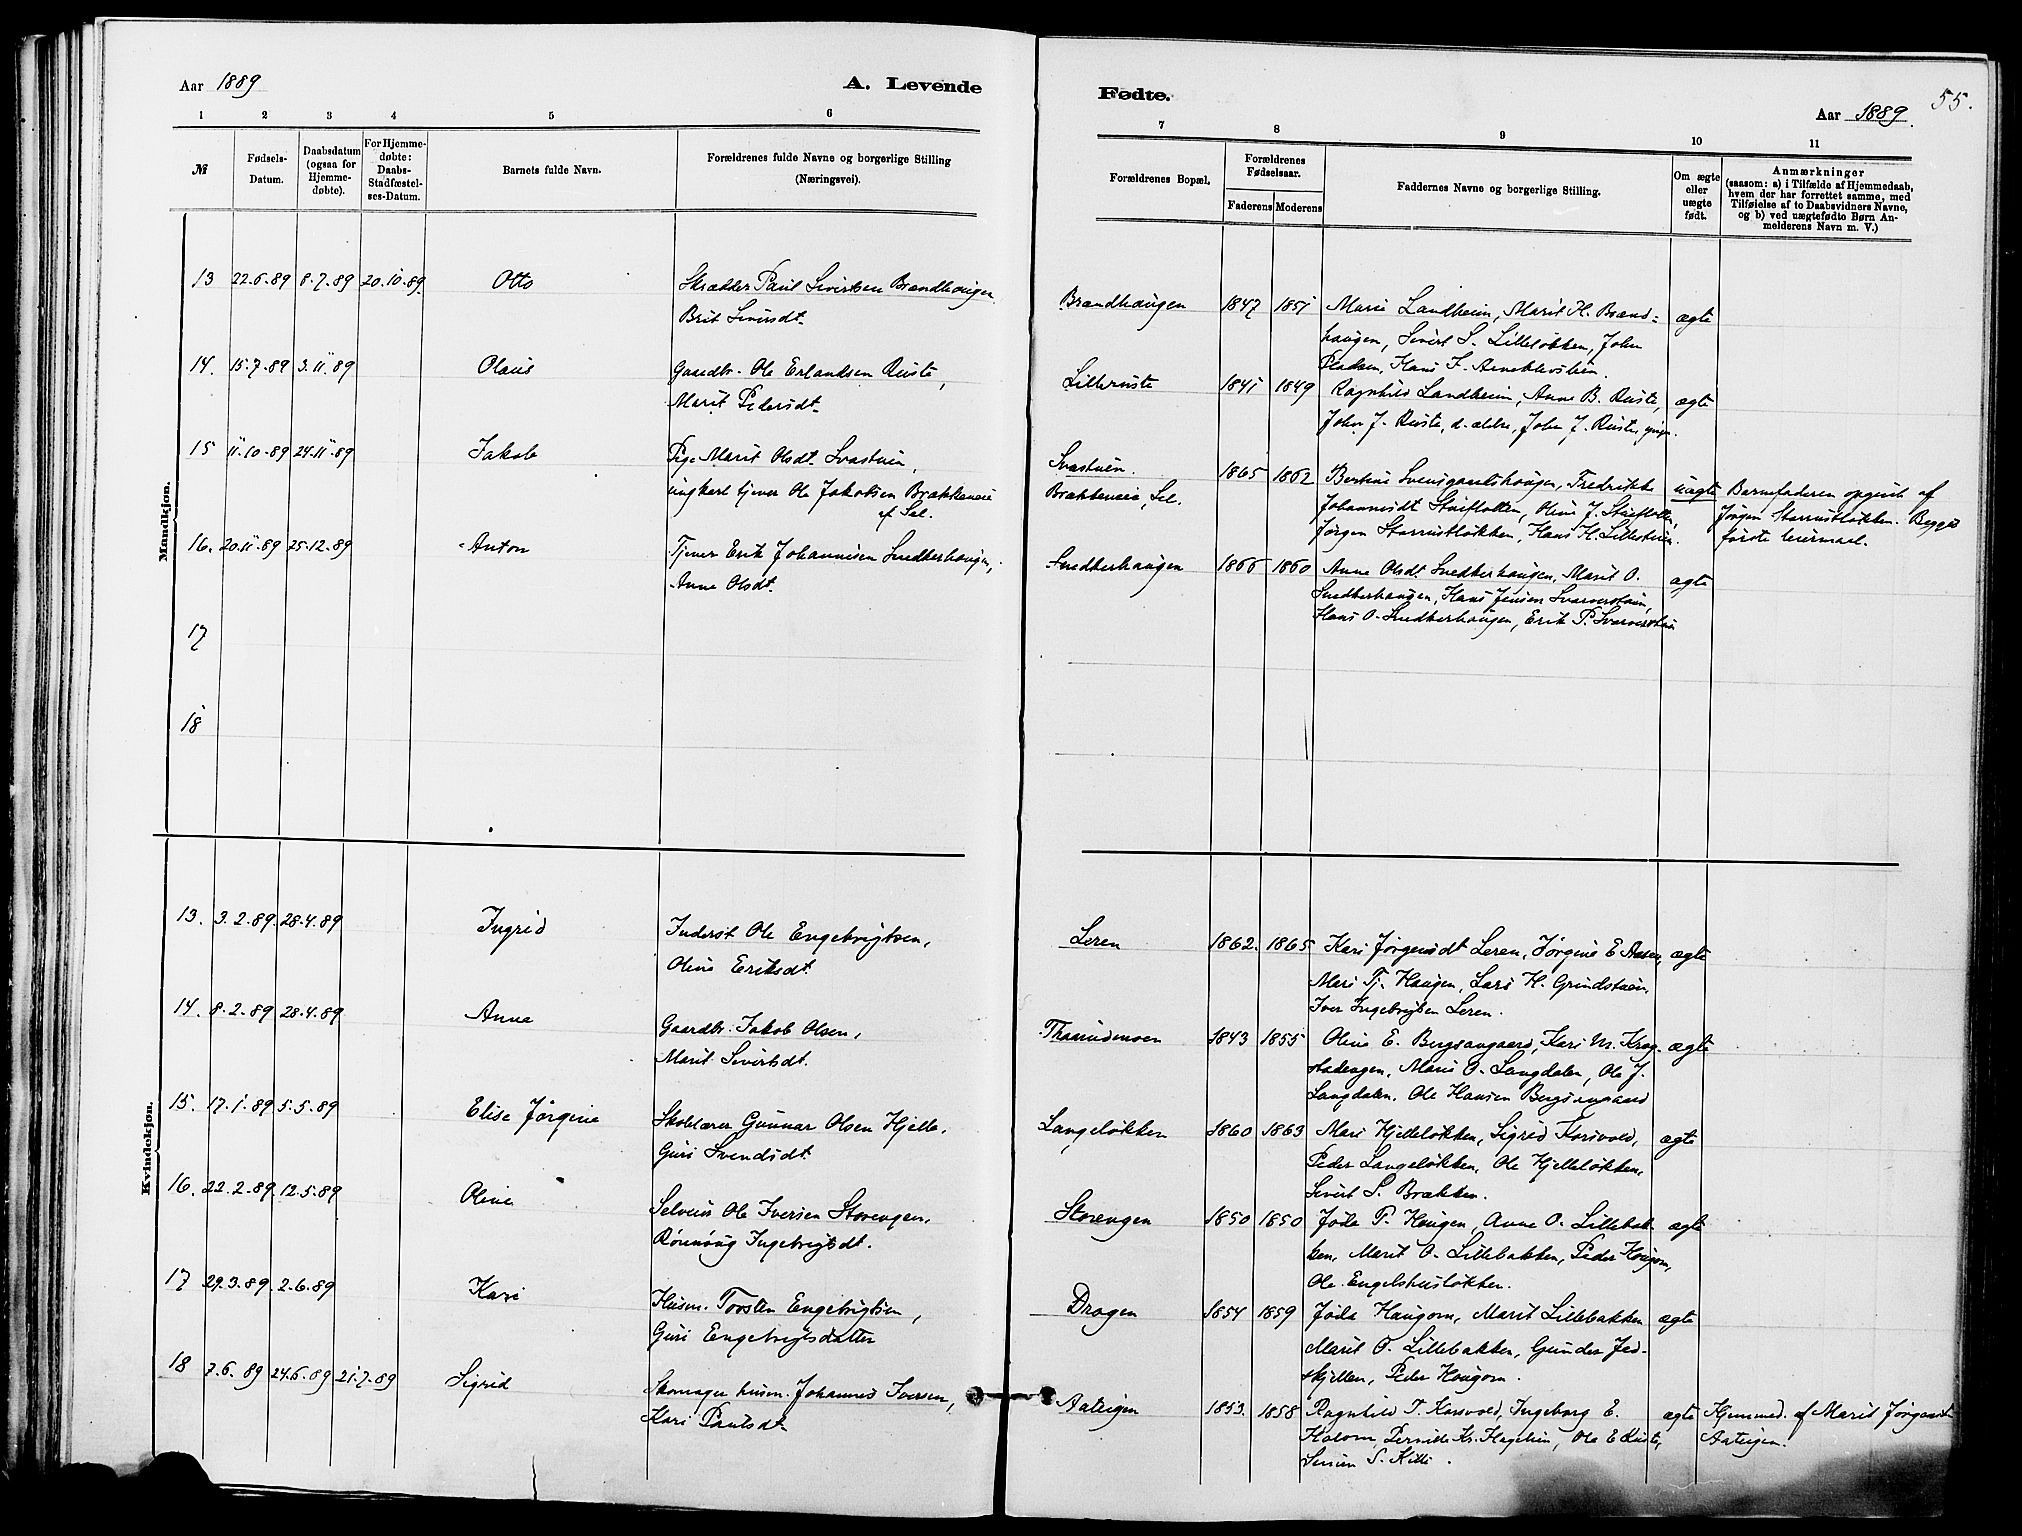 Aar 1889
A. Levende
Fødte.
Aar 1889.
55.
1 2 3 4 5 6
7 8 9 10 11
№
Fødsels-
Datum.
Daabsdatum
(ogsaa for
Hjemme-
døbte).
For Hjemme-
døbte:
Daabs-
Stadfæstel-
ses-Datum.
Barnets fulde Navn.
Forældrenes fulde Navne og borgerlige Stilling
(Næringsvei).
Forældrenes Bopæl.
Forældrenes
Fødselsaar.
Faderens Moderens
Faddernes Navne og borgerlige Stilling.
Om ægte
eller
uægte
født.
Anmærkninger
(saasom: a) i Tilfælde af Hjemmedaab,
hvem der har forrettet samme, med
Tilføielse af to Daabsvidners Navne,
og b) ved uægtefødte Børn An-
melderens Navn m. V.)
Mandkjøn.
13 22.6.89 8.7.89 20.10.89. Otto
Skrædder Paul Sivertsen Brændhougen
Brit Siversdt.
Brændhaugen 1847 1851 Marie Landheim, Marit H. Brænd- ægte
haugen, Sivert S. Lilleløkken, John
Pladsen, Hans F.
14. 15.7.89 3.11.89 Olaus
Gaardbr. Ole Erlandsen Ruste,
Marit Pedersdt.
Lilleruste 1841 1849 Ragnhild Landheim, Anne B. Ruste, ægte
John J. Ruste, d. ældre, John J. Ruste, yngr.
15 11.10.89 24.11.89 Jakob
Pige Marit Olsdt. Svastuen,
ungkarl tjener Ole Jakobsen Brækkeneie
af Sel.
Svastuen.
Brækkeneie, Sel. 1865 1862 Bertine Svensgaardshaugen, Fredrikke uægte Barnefaderen opgivet af
Johannesdt Stuefloten, Oline J. Stuefloten, Jørgen Storrustløkken. Begges
Jørgen Storrustløkken, Hans H. Lillestuen. første leiermaal.
16. 20.11.89 25.12.89 Anton
Tjener Erik Johannesen Snedkerhaugen,
Anne Olsdt.
Snedkerhaugen 1866 1860 Anne Olsdt. Snedkerhaugen, Marit O. ægte
Snedkerhaugen, Hans Jensen Svarverstuen,
Hans O. Snedkerhaugen, Erik P. Svarverstuen
17
18
Kvindekjøn.
13. 3.2.89. 28.4.89 Ingrid
Inderst Ole Engebrigtsen,
Oline Eriksdt.
Leren 1862. 1865 Kari Jørgensdt Leren, Jørgine E. Aasen, ægte
Mari Tj. Haugen, Lars H. Grindstuen,
Iver Ingebrigtsen Leren.
14. 8.2.89 28.4.89 Anne
Gaardbr. Jakob Olsen,
Marit Sivertsdt.
1843 1855 Oline E. Bergsangaard, Kari M. Krog- ægte
stadengen, Marie O. Langdalen, Ole J.
Langdalen. Ole Hansen Bergsengaard
15. 17.1.89 5.5.89 Elise Jørgine
Skolelærer Gunnar Olsen Hjelle,
Guri Svendsdt.
Langeløkken 1860 1863 Mari Hjelleløkken, Sigrid Korsvold, ægte
Peder Langeløkken, Ole Hjelleløkken,
Sivert S. Brækken.
16. 22.2.89. 12.5.89 Oline
Selveier Ole Iversen Storengen,
Rønnaug Ingebrigtsdt.
Storengen 1850 1850 Jøda P. Haugen, Anne O. Lillebak- ægte
ken, Marit O. Lillebakken, Peder Hougom,
Ole Engelshusløkken.
17 29.3.89. 2.6.89 Kari
Husm. Torsten Engebrigtsen,
Guri Engebrigtsdatter
Drogen 1854 1859 Jøda Haugom, Marit Lillebakken ægte
Marit O. Lillebakken, Gunder Jed-
skjellen, Peder Hougom.
18 7.6.89 24.6.89 21.7.89 Sigrid
Skomager husm. Johannes Iversen,
Kari Paulsdt.
Aateigen 1853. 1858 Ragnhild T. Korsvold, Ingeborg E. ægte Hjemmed. af Marit Jørgensdt
Holom, Pernille Kr. Hageluen, Ole E. Ruste, Aateigen.
S. Kille.